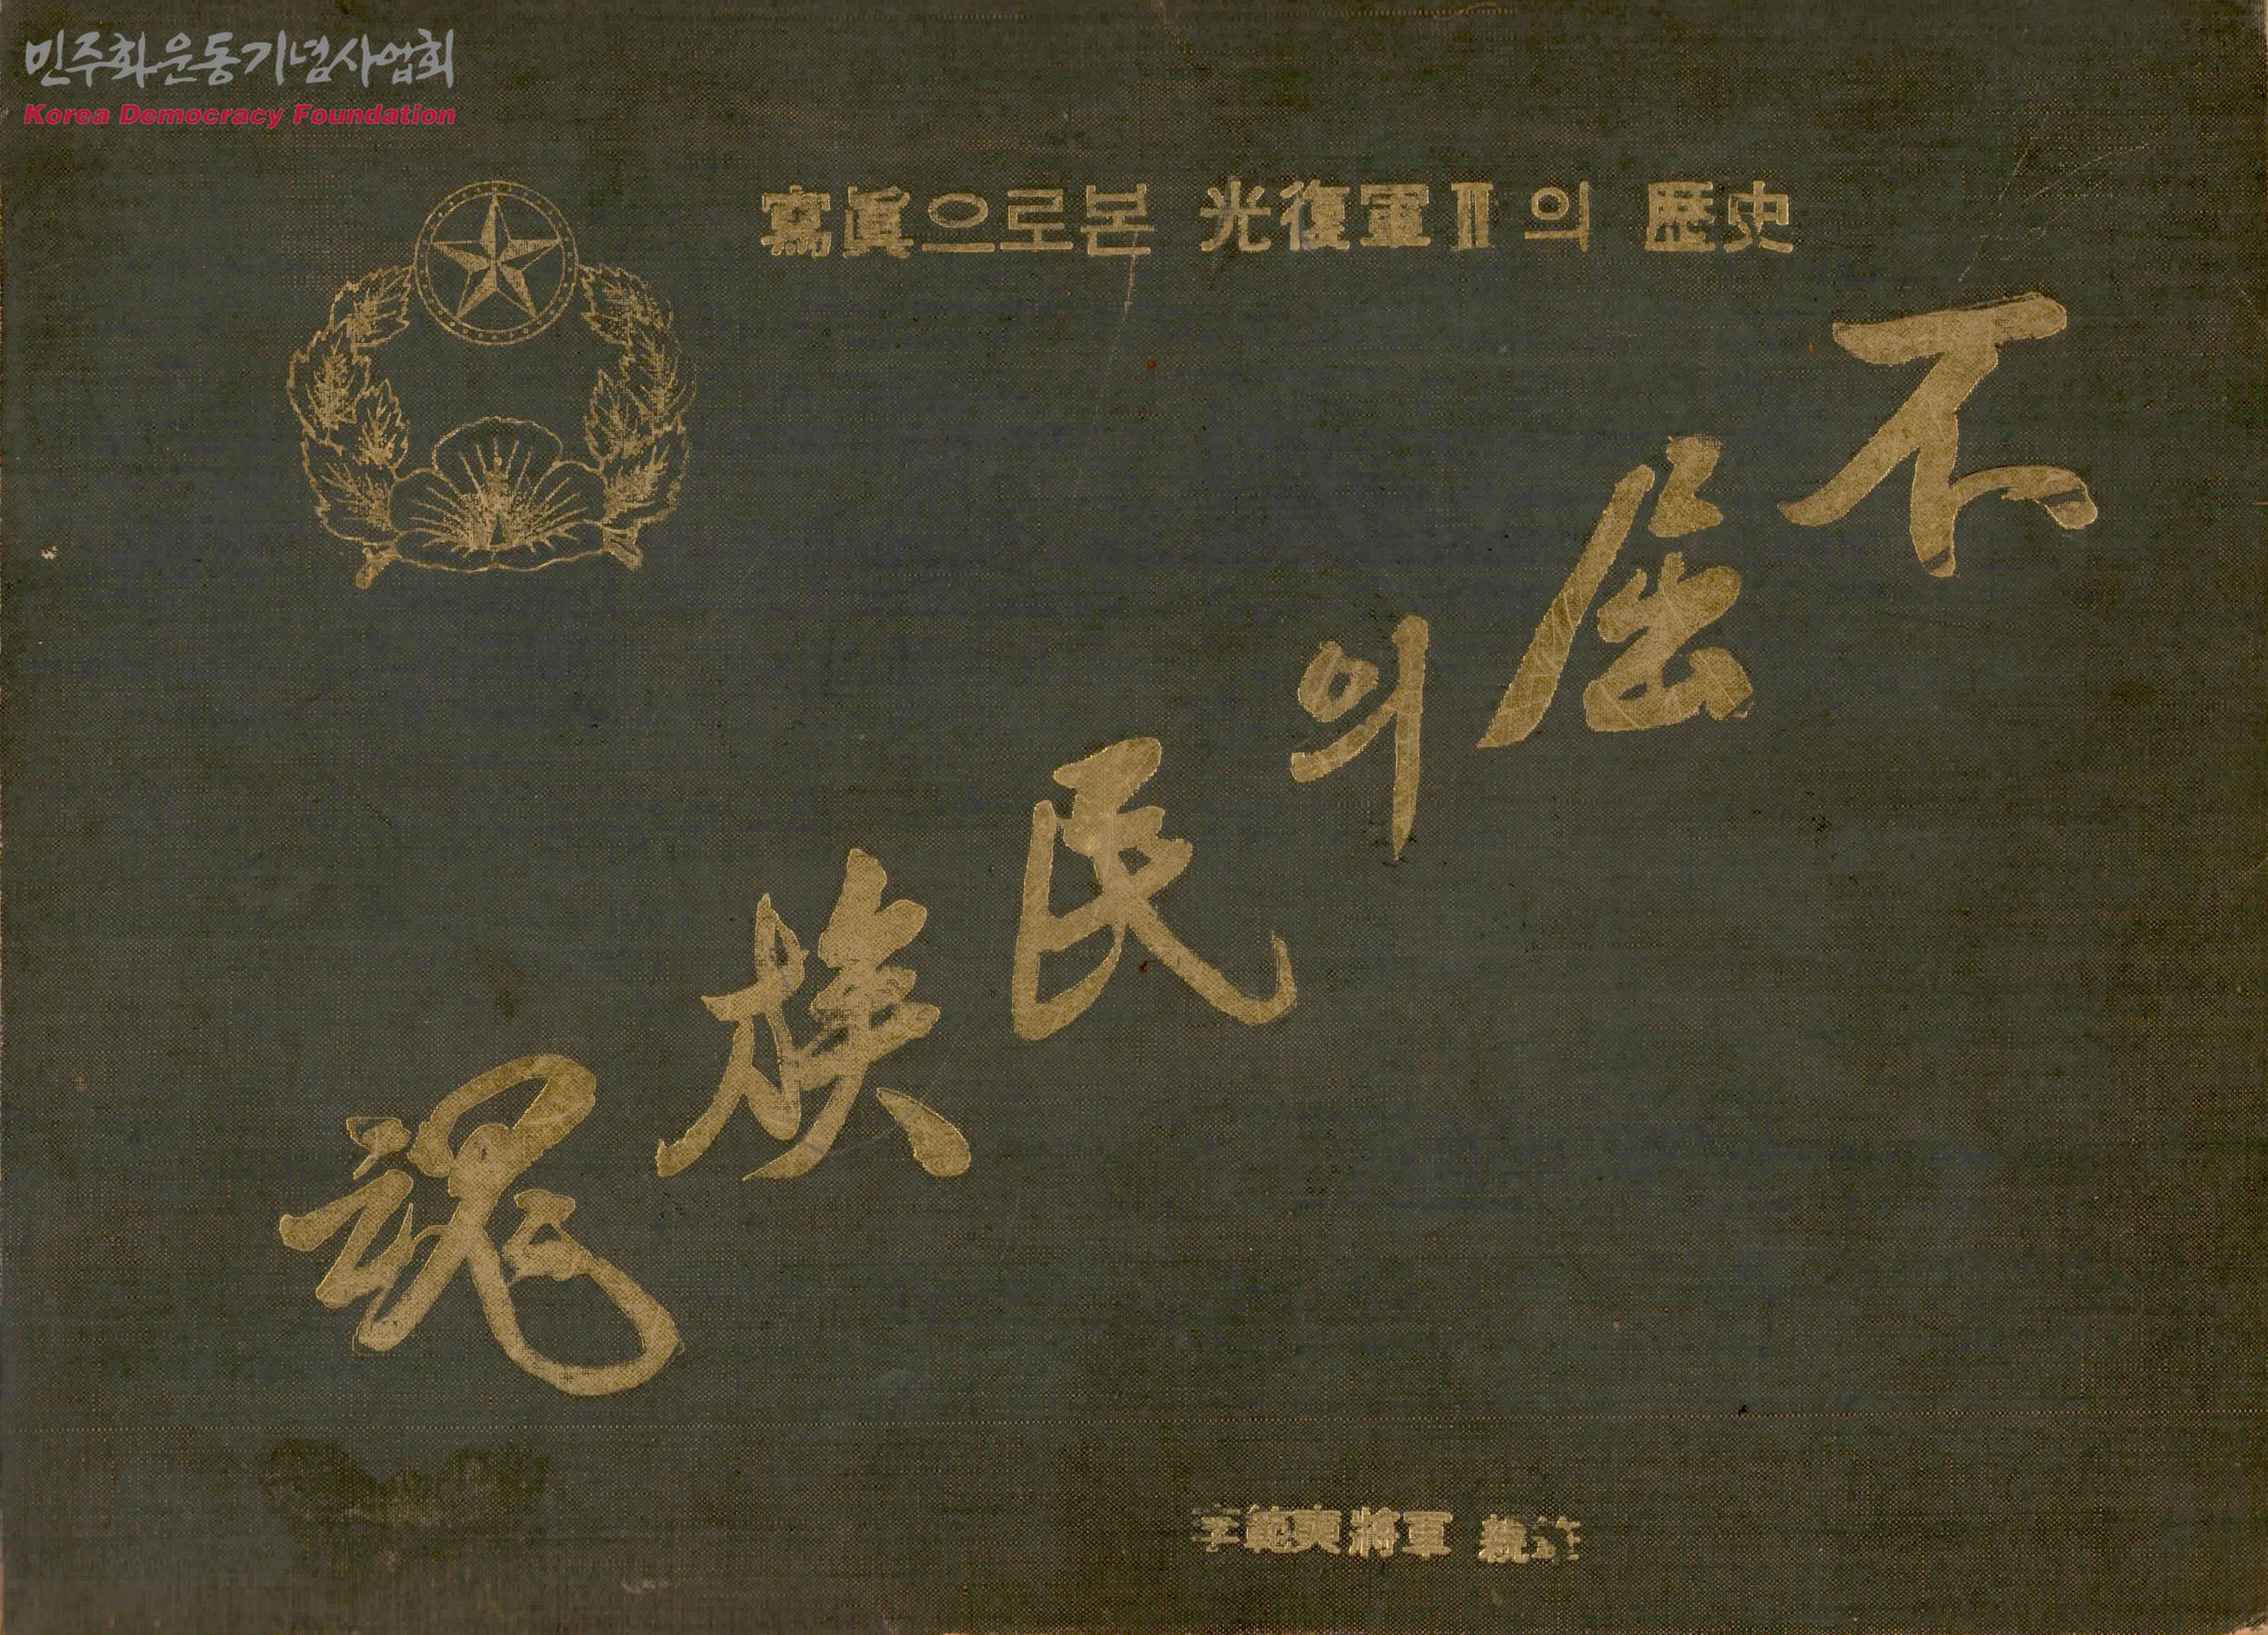 민주화운동기념사업회
Korea Democracy Foundation
寫眞으로본 光復軍Ⅱ의 歷史
不屈의民族魂
李範奭將軍